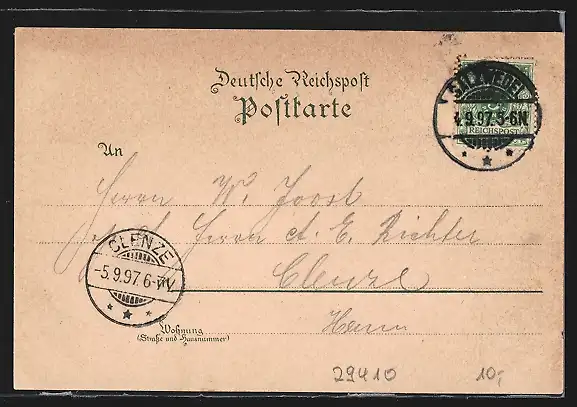 Deutsche Reichspost
Postkarte
SALZWEDEL
4.9.97.5-6N
REICHSPOST
An
Herrn W. Joost
Herrn A. E. Richter
CLENZE
-5.9.97.6-7V
Clenze
Hann
Wohnung
(Straße und Hausnummer)
29410 10,-